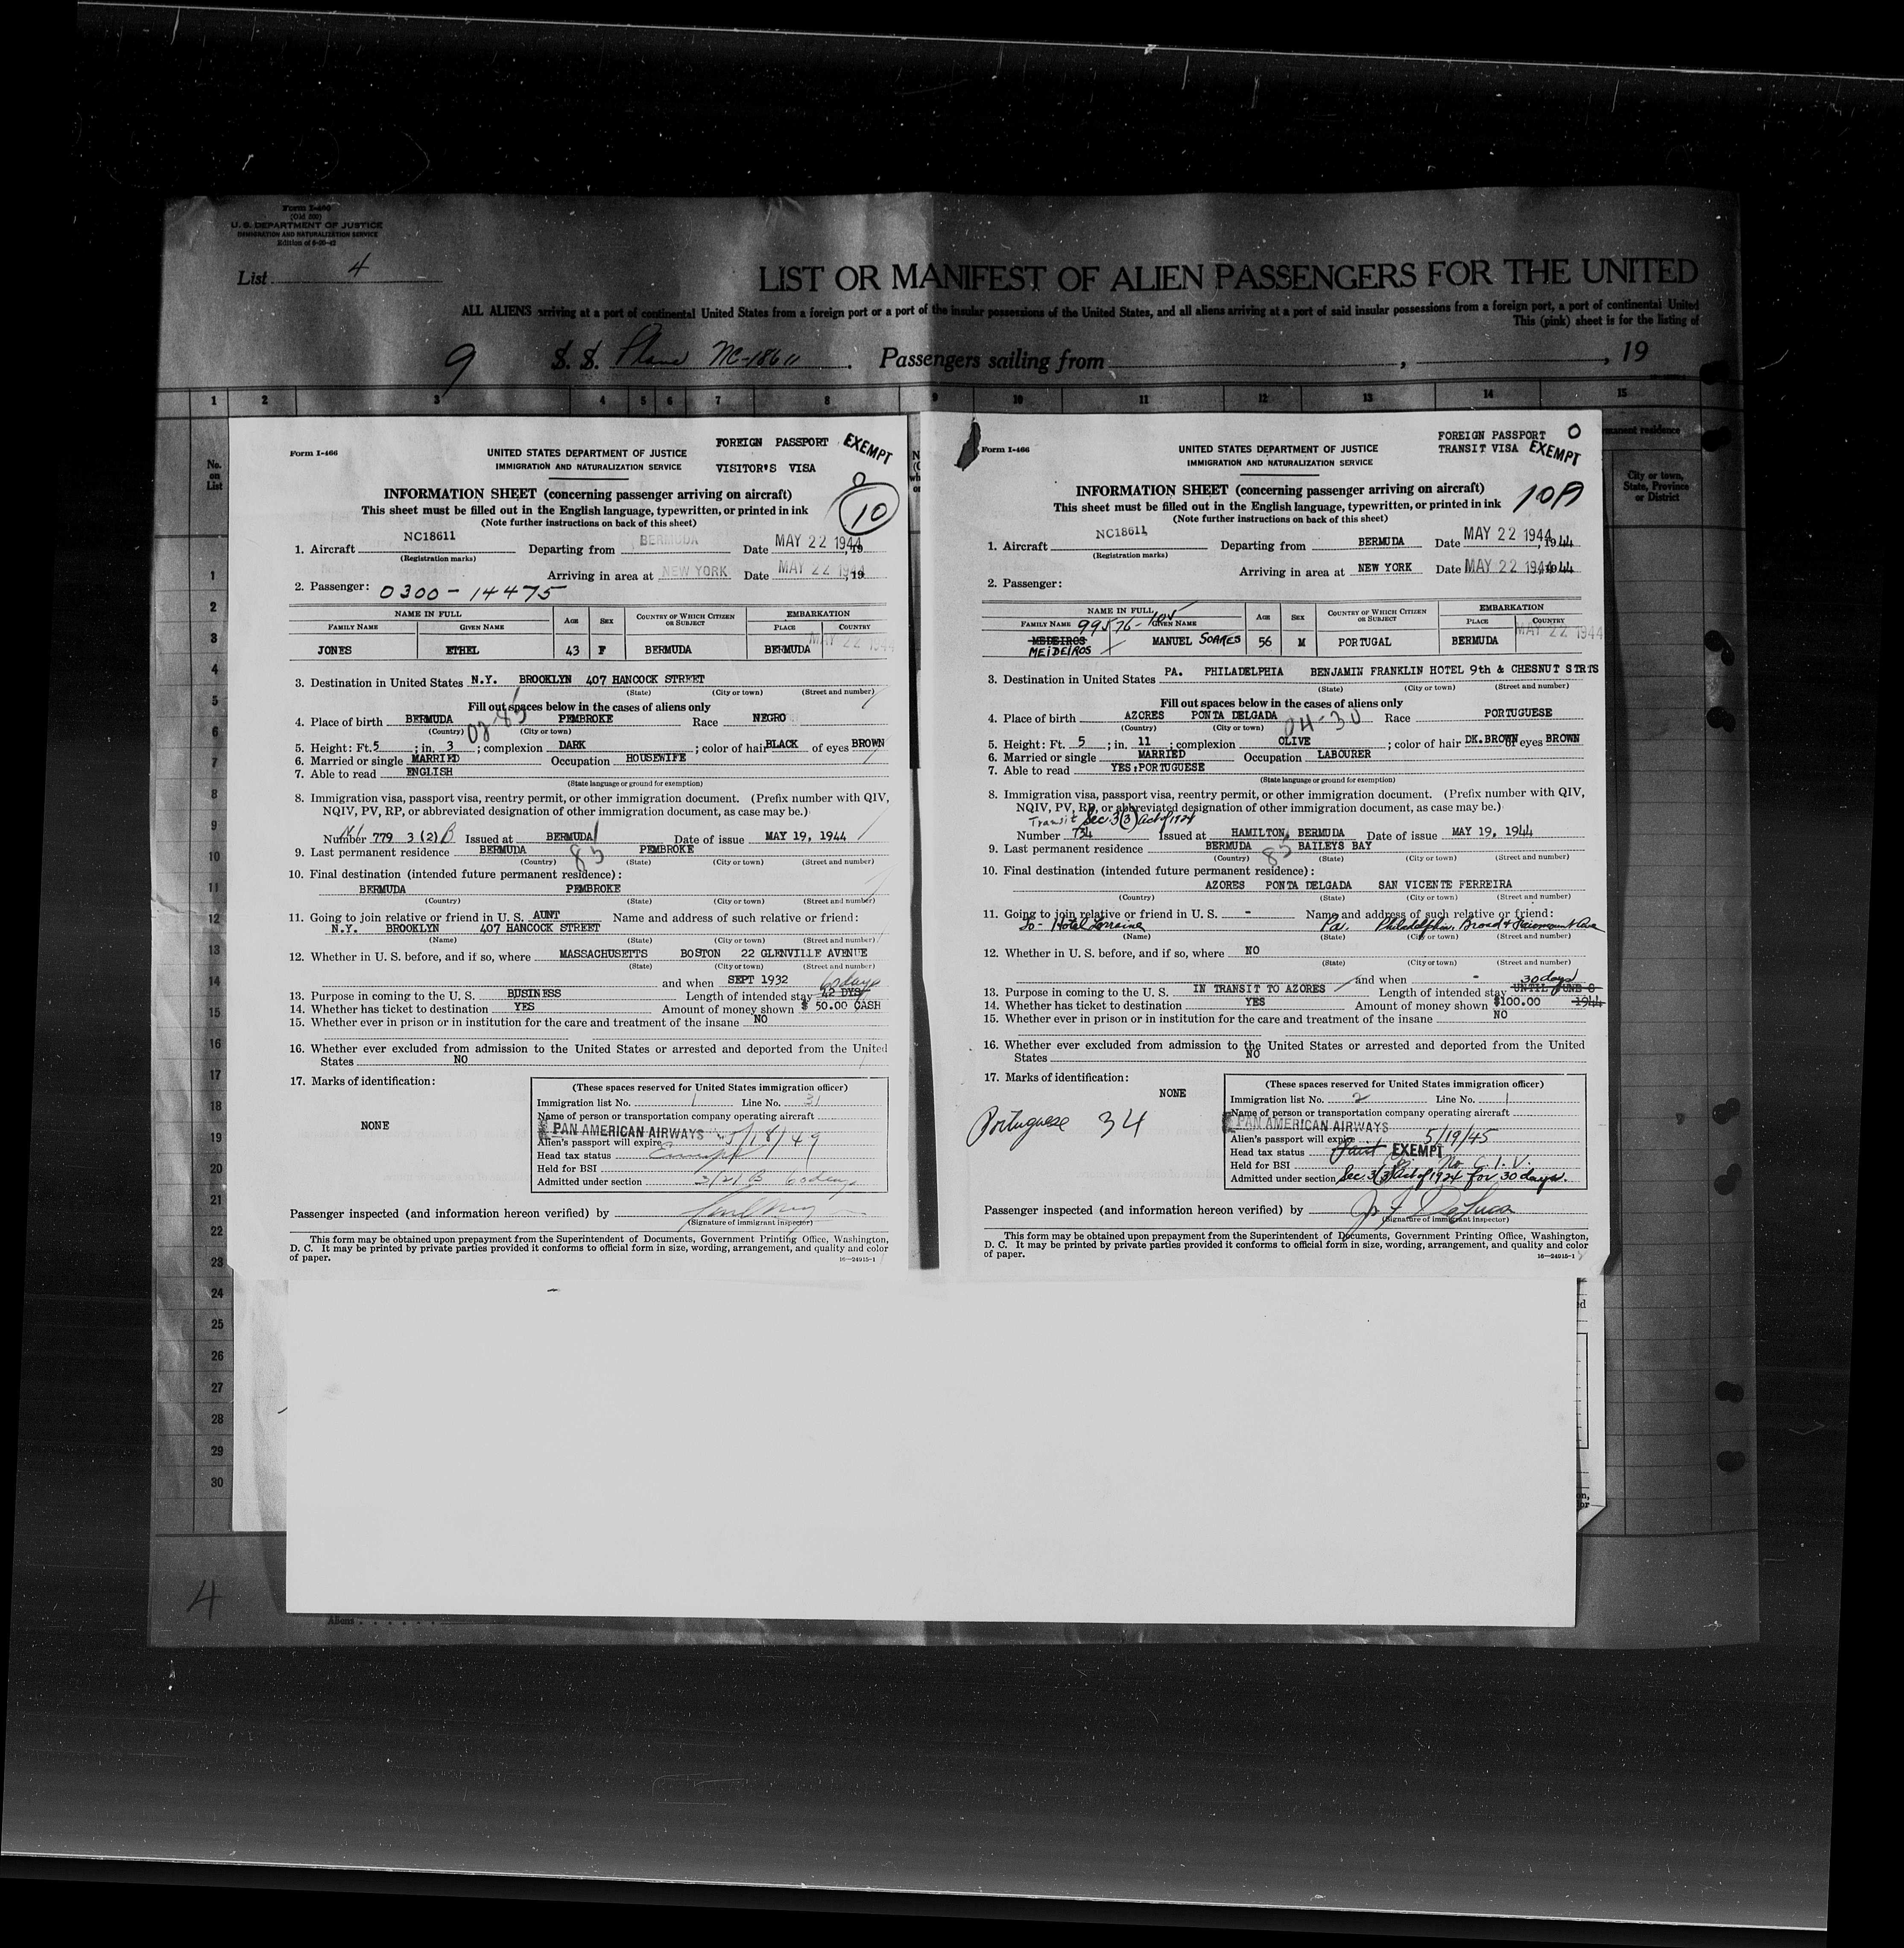 Form I-466
(Old 500)
U. S. DEPARTMENT OF JUSTICE
IMMIGRATION AND NATURALIZATION SERVICE
List 4
LIST OR MANIFEST OF ALIEN PASSENGERS FOR THE UNITED
ALL ALIENS arriving at a port of continental United States from a foreign port or a port of the insular possessions of the United States, and all aliens arriving at a port of said insular possessions from a foreign port, a port of continental United
This (pink) sheet is for the listing of
9 S. S. Plane NC-18611. Passengers sailing from , , 19
1 2 3 4 5 6 7 8 9 10 11 12 13 14 15
No. on List
manent residence
City or town, State, Province or District
Form I-466
FOREIGN PASSPORT EXEMPT
UNITED STATES DEPARTMENT OF JUSTICE
IMMIGRATION AND NATURALIZATION SERVICE
VISITOR'S VISA
0
INFORMATION SHEET (concerning passenger arriving on aircraft)
10
This sheet must be filled out in the English language, typewritten, or printed in ink
(Note further instructions on back of this sheet)
1. Aircraft NC18611 Departing from BERMUDA Date MAY 22 1944, 19
(Registration marks)
Arriving in area at NEW YORK Date MAY 22 1944, 19
2. Passenger: 0300-14475
NAME IN FULL AGE SEX COUNTRY OF WHICH CITIZEN OR SUBJECT EMBARKATION
FAMILY NAME GIVEN NAME PLACE COUNTRY
MAY 22 1944
JONES ETHEL 43 F BERMUDA BERMUDA
3. Destination in United States N.Y. BROOKLYN 407 HANCOCK STREET
(State) (City or town) (Street and number)
Fill out spaces below in the cases of aliens only
4. Place of birth BERMUDA PEMBROKE Race NEGRO
(Country) (City or town)
5. Height: Ft. 5; in. 3; complexion DARK; color of hair BLACK of eyes BROWN
6. Married or single MARRIED Occupation HOUSEWIFE
7. Able to read ENGLISH
(State language or ground for exemption)
8. Immigration visa, passport visa, reentry permit, or other immigration document. (Prefix number with QIV,
NQIV, PV, RP, or abbreviated designation of other immigration document, as case may be.)
Number 779 3(2)B Issued at BERMUDA Date of issue MAY 19, 1944
9. Last permanent residence BERMUDA 85 PEMBROKE
(Country) (State) (City or town) (Street and number)
10. Final destination (intended future permanent residence):
BERMUDA PEMBROKE
(Country) (State) (City or town) (Street and number)
11. Going to join relative or friend in U. S. AUNT Name and address of such relative or friend:
N.Y. BROOKLYN 407 HANCOCK STREET
(Name) (State) (City or town) (Street and number)
12. Whether in U. S. before, and if so, where MASSACHUSETTS BOSTON 22 GLENVILLE AVENUE
(State) (City or town) (Street and number)
and when SEPT 1932 60 days
13. Purpose in coming to the U. S. BUSINESS Length of intended stay 42 DYS
14. Whether has ticket to destination YES Amount of money shown $ 50.00 CASH
15. Whether ever in prison or in institution for the care and treatment of the insane NO
16. Whether ever excluded from admission to the United States or arrested and deported from the United
States NO
17. Marks of identification:
NONE
(These spaces reserved for United States immigration officer)
Immigration list No. 1 Line No. 31
Name of person or transportation company operating aircraft
PAN AMERICAN AIRWAYS
Alien's passport will expire 5/18/49
Head tax status Exempt
Held for BSI
Admitted under section 3(2)B 60 days
Passenger inspected (and information hereon verified) by
(Signature of immigrant inspector)
This form may be obtained upon prepayment from the Superintendent of Documents, Government Printing Office, Washington,
D. C. It may be printed by private parties provided it conforms to official form in size, wording, arrangement, and quality and color
of paper. 16—24915-1
Form I-466
FOREIGN PASSPORT 0
TRANSIT VISA EXEMPT
UNITED STATES DEPARTMENT OF JUSTICE
IMMIGRATION AND NATURALIZATION SERVICE
INFORMATION SHEET (concerning passenger arriving on aircraft)
10A
This sheet must be filled out in the English language, typewritten, or printed in ink
(Note further instructions on back of this sheet)
1. Aircraft NC18611 Departing from BERMUDA Date MAY 22 1944, 1944
(Registration marks)
Arriving in area at NEW YORK Date MAY 22 1944, 1944
2. Passenger:
NAME IN FULL AGE SEX COUNTRY OF WHICH CITIZEN OR SUBJECT EMBARKATION
FAMILY NAME GIVEN NAME PLACE COUNTRY
MAY 22 1944
MEDEIROS MANUEL SOARES 56 M PORTUGAL BERMUDA
MEIDEIROS
3. Destination in United States PA. PHILADELPHIA BENJAMIN FRANKLIN HOTEL 9th & CHESNUT STRTS
(State) (City or town) (Street and number)
Fill out spaces below in the cases of aliens only
4. Place of birth AZORES PONTA DELGADA 04-30 Race PORTUGUESE
(Country) (City or town)
5. Height: Ft. 5; in. 11; complexion OLIVE; color of hair DK.BROWN of eyes BROWN
6. Married or single MARRIED Occupation LABOURER
7. Able to read YES, PORTUGUESE
(State language or ground for exemption)
8. Immigration visa, passport visa, reentry permit, or other immigration document. (Prefix number with QIV,
NQIV, PV, RP, or abbreviated designation of other immigration document, as case may be.)
Transit Sec. 3(3) Act of 1924
Number 734 Issued at HAMILTON, BERMUDA Date of issue MAY 19, 1944
9. Last permanent residence BERMUDA 85 BAILEYS BAY
(Country) (State) (City or town) (Street and number)
10. Final destination (intended future permanent residence):
AZORES PONTA DELGADA SAN VICENTE FERREIRA
(Country) (State) (City or town) (Street and number)
11. Going to join relative or friend in U. S. - Name and address of such relative or friend:
To - Hotel Lorraine Pa. Philadelphia, Broad & Fairmount Ave
(Name) (State) (City or town) (Street and number)
12. Whether in U. S. before, and if so, where NO
(State) (City or town) (Street and number)
and when - 30 days
13. Purpose in coming to the U. S. IN TRANSIT TO AZORES Length of intended stay UNTIL JUNE 8
14. Whether has ticket to destination YES Amount of money shown $100.00 1944
15. Whether ever in prison or in institution for the care and treatment of the insane NO
16. Whether ever excluded from admission to the United States or arrested and deported from the United
States NO
17. Marks of identification:
NONE
Portuguese 34
(These spaces reserved for United States immigration officer)
Immigration list No. 2 Line No. 1
Name of person or transportation company operating aircraft
PAN AMERICAN AIRWAYS
Alien's passport will expire 5/19/45
Head tax status EXEMPT
Held for BSI No C.I.V.
Admitted under section Sec. 3(3) Act of 1924 for 30 days.
Passenger inspected (and information hereon verified) by
(Signature of immigrant inspector)
This form may be obtained upon prepayment from the Superintendent of Documents, Government Printing Office, Washington,
D. C. It may be printed by private parties provided it conforms to official form in size, wording, arrangement, and quality and color
of paper. 16—24915-1
1
2
3
4
5
6
7
8
9
10
11
12
13
14
15
16
17
18
19
20
21
22
23
24
25
26
27
28
29
30
4
Aliens